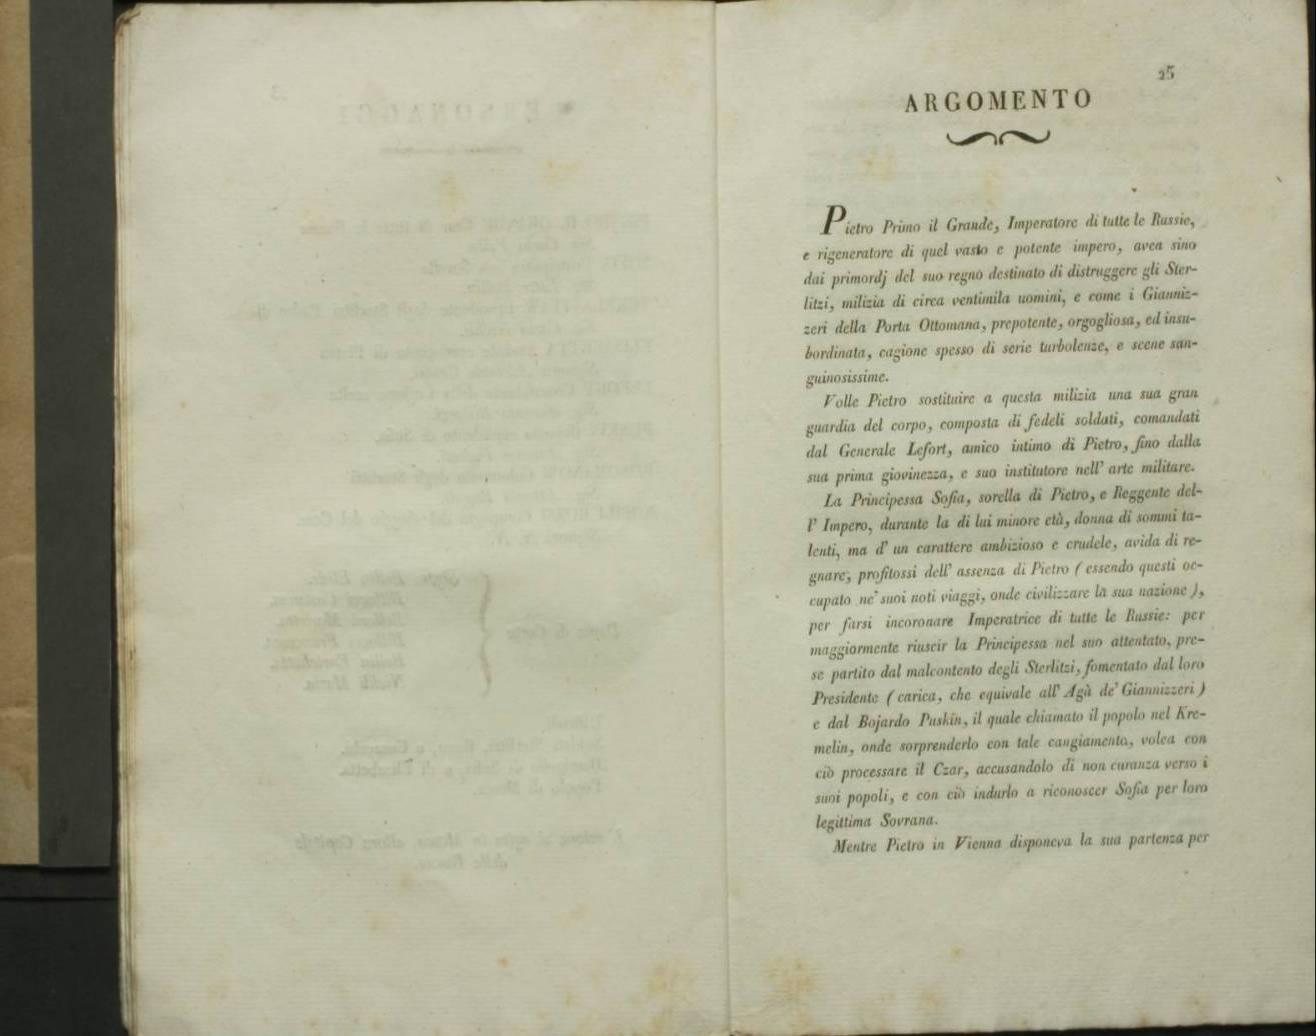 25
ARGOMENTO
Pietro Primo il Grande, Imperatore di tutte le Russie,
e rigeneratore di quel vasto e potente impero, avea sino
dai primordj del suo regno destinato di distruggere gli Ster-
litzi, milizia di circa ventimila uomini, e come i Gianniz-
zeri della Porta Ottomana, prepotente, orgogliosa, ed insu-
bordinata, cagione spesso di serie turbolenze, e scene san-
guinosissime.
Volle Pietro sostituire a questa milizia una sua gran
guardia del corpo, composta di fedeli soldati, comandati
dal Generale Lefort, amico intimo di Pietro, fino dalla
sua prima giovinezza, e suo institutore nell' arte militare.
La Principessa Sofia, sorella di Pietro, e Reggente del-
l' Impero, durante la di lui minore età, donna di sommi ta-
lenti, ma d' un carattere ambizioso e crudele, avida di re-
gnare, profitossi dell' assenza di Pietro ( essendo questi oc-
cupato ne' suoi noti viaggi, onde civilizzare la sua nazione ),
per farsi incoronare Imperatrice di tutte le Russie: per
maggiormente riuscir la Principessa nel suo attentato, pre-
se partito dal malcontento degli Sterlitzi, fomentato dal loro
Presidente ( carica, che equivale all' Agà de' Giannizzeri )
e dal Bojardo Puskin, il quale chiamato il popolo nel Kre-
melin, onde sorprenderlo con tale cangiamento, volea con
ciò processare il Czar, accusandolo di non curanza verso i
suoi popoli, e con ciò indurlo a riconoscer Sofia per loro
legittima Sovrana.
Mentre Pietro in Vienna disponeva la sua partenza per